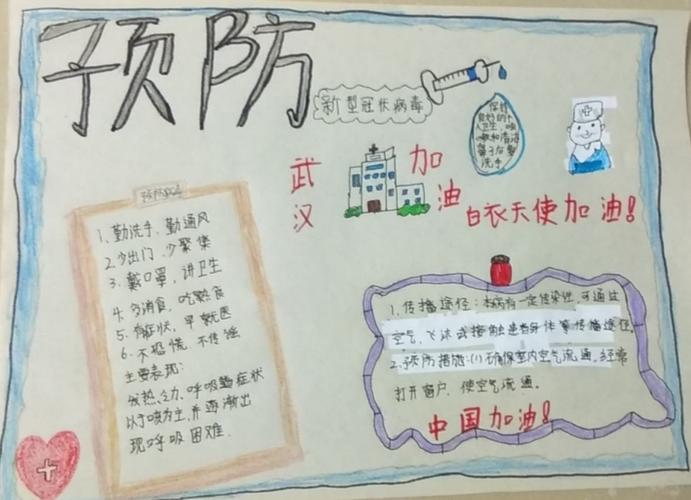 预防
新型冠状病毒
保持
良好的个
人卫生，咳
嗽和清洁
鼻子后要
洗手
武汉
加油
白衣天使加油！
1、勤洗手、勤通风
2、少出门、少聚集
3、戴口罩、讲卫生
4、多消食、吃熟食
5、有症状、早就医
6、不恐慌、不传谣
主要表现：
发热、乏力、呼吸道症状
以干咳为主，并逐渐出
现呼吸困难.
1、传播途径：本病有一定传染性，可通过
空气、飞沫或接触患者身体等传播途径。
2、预防措施：(1)确保室内空气流通。经常
打开窗户，使空气流通。
中国加油！